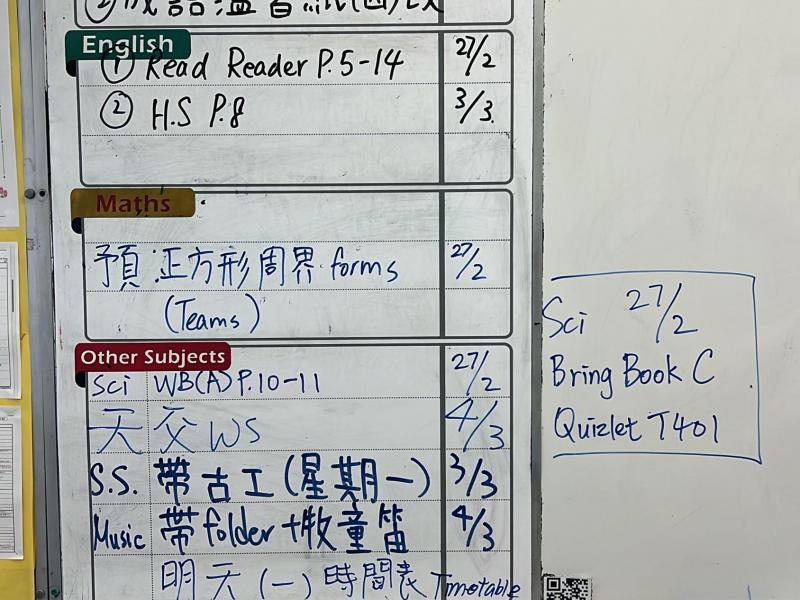 ② 成語溫習紙(四)改
English
① Read Reader P.5-14 27/2
② H.S P.8 3/3
Maths
預:正方形周界 forms 27/2
(Teams)
Other Subjects
Sci WB(A) P.10-11 27/2
天 交 WS 4/3
S.S. 帶古工(星期一) 3/3
Music 帶folder+牧童笛 4/3
明天(一)時間表 Timetable
Sci 27/2
Bring Book C
Quizlet T401